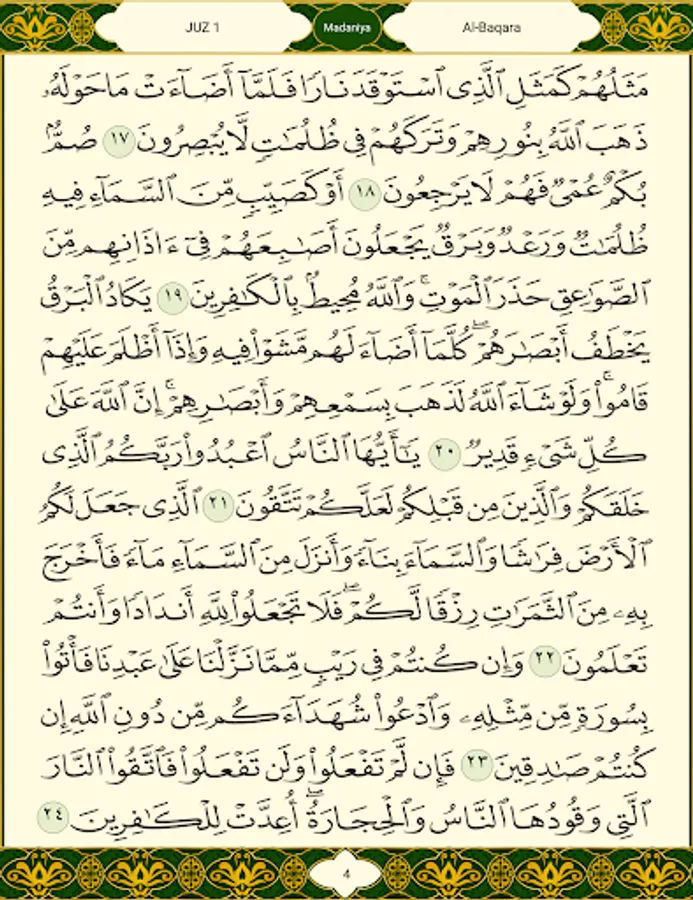 JUZ 1
Madaniya
Al-Baqara
مَثَلُهُمْ كَمَثَلِ ٱلَّذِى ٱسْتَوْقَدَ نَارًا فَلَمَّآ أَضَآءَتْ مَا حَوْلَهُۥ
ذَهَبَ ٱللَّهُ بِنُورِهِمْ وَتَرَكَهُمْ فِى ظُلُمَـٰتٍ لَّا يُبْصِرُونَ ١٧ صُمٌّۢ
بُكْمٌ عُمْىٌ فَهُمْ لَا يَرْجِعُونَ ١٨ أَوْ كَصَيِّبٍ مِّنَ ٱلسَّمَآءِ فِيهِ
ظُلُمَـٰتٌ وَرَعْدٌ وَبَرْقٌ يَجْعَلُونَ أَصَـٰبِعَهُمْ فِىٓ ءَاذَانِهِم مِّنَ
ٱلصَّوَٰعِقِ حَذَرَ ٱلْمَوْتِ ۚ وَٱللَّهُ مُحِيطٌۢ بِٱلْكَـٰفِرِينَ ١٩ يَكَادُ ٱلْبَرْقُ
يَخْطَفُ أَبْصَـٰرَهُمْ ۖ كُلَّمَآ أَضَآءَ لَهُم مَّشَوْا۟ فِيهِ وَإِذَآ أَظْلَمَ عَلَيْهِمْ
قَامُوا۟ ۚ وَلَوْ شَآءَ ٱللَّهُ لَذَهَبَ بِسَمْعِهِمْ وَأَبْصَـٰرِهِمْ ۚ إِنَّ ٱللَّهَ عَلَىٰ
كُلِّ شَىْءٍ قَدِيرٌ ٢٠ يَـٰٓأَيُّهَا ٱلنَّاسُ ٱعْبُدُوا۟ رَبَّكُمُ ٱلَّذِى
خَلَقَكُمْ وَٱلَّذِينَ مِن قَبْلِكُمْ لَعَلَّكُمْ تَتَّقُونَ ٢١ ٱلَّذِى جَعَلَ لَكُمُ
ٱلْأَرْضَ فِرَٰشًا وَٱلسَّمَآءَ بِنَآءً وَأَنزَلَ مِنَ ٱلسَّمَآءِ مَآءً فَأَخْرَجَ
بِهِۦ مِنَ ٱلثَّمَرَٰتِ رِزْقًا لَّكُمْ ۖ فَلَا تَجْعَلُوا۟ لِلَّهِ أَندَادًا وَأَنتُمْ
تَعْلَمُونَ ٢٢ وَإِن كُنتُمْ فِى رَيْبٍ مِّمَّا نَزَّلْنَا عَلَىٰ عَبْدِنَا فَأْتُوا۟
بِسُورَةٍ مِّن مِّثْلِهِۦ وَٱدْعُوا۟ شُهَدَآءَكُم مِّن دُونِ ٱللَّهِ إِن
كُنتُمْ صَـٰدِقِينَ ٢٣ فَإِن لَّمْ تَفْعَلُوا۟ وَلَن تَفْعَلُوا۟ فَٱتَّقُوا۟ ٱلنَّارَ
ٱلَّتِى وَقُودُهَا ٱلنَّاسُ وَٱلْحِجَارَةُ ۖ أُعِدَّتْ لِلْكَـٰفِرِينَ ٢٤
4